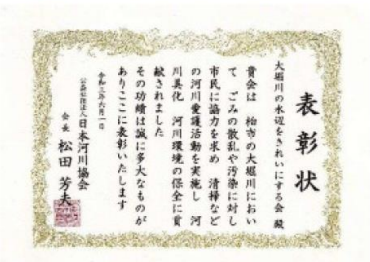 表彰状
大堀川の水辺をきれいにする会 殿
貴会は 柏市の大堀川におい
て ごみの散乱や汚染に対し
市民に協力を求め 清掃など
の河川愛護活動を実施し 河
川美化 河川環境の保全に貢
献されました
その功績は誠に多大なものが
ありここに表彰いたします
令和三年六月一日
公益社団法人日本河川協会
会長 松田芳夫